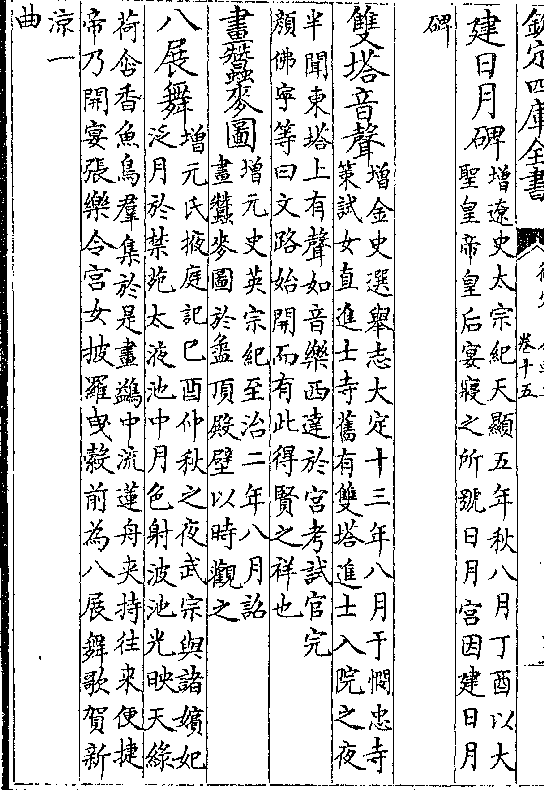 欽定四庫全書
卷十五
建日月碑 增遼史太宗紀天顯五年秋八月丁酉以大
聖皇帝皇后宴寢之所號日月宮因建日月
碑
雙塔音聲 增金史選舉志大定十三年八月于憫忠寺
策試女直進士寺舊有雙塔進士入院之夜
半聞東塔上有聲如音樂西達於宮考試官完
顔佛寧等曰文路始開而有此得賢之祥也
畫蠶麥圖 增元史英宗紀至治二年八月詔
畫蠶麥圖於盝頂殿壁以時觀之
八展舞 增元氏掖庭記己酉仲秋之夜武宗與諸嬪妃
泛月於禁苑太液池中月色射波池光映天綠
荷含香魚鳥羣集於是畫鷁中流蓮舟夾持往來便捷
帝乃開宴張樂令宮女披羅曳縠前為八展舞歌賀新
涼一
曲